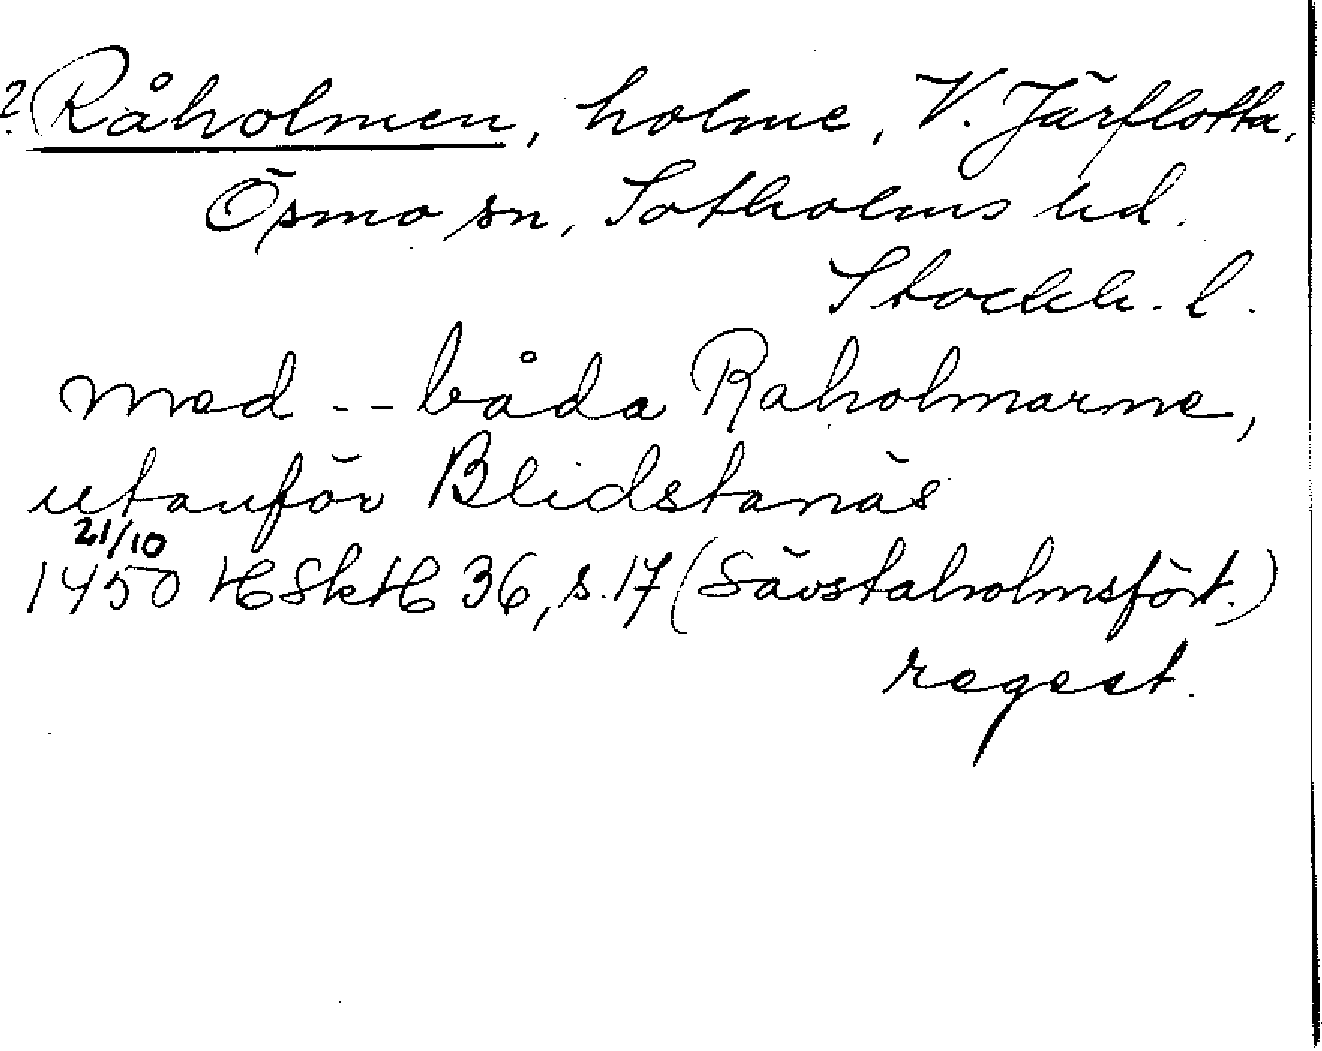 ? Råholmen, holme, V. Järflotta,
Ösmo sn, Sotholms hd.
Stockh. l.
med -- båda Raholmarne,
utanför Blidstanäs
21/10
1450 HSkH 36, s. 17 (Sävstaholmsfört.)
regest.